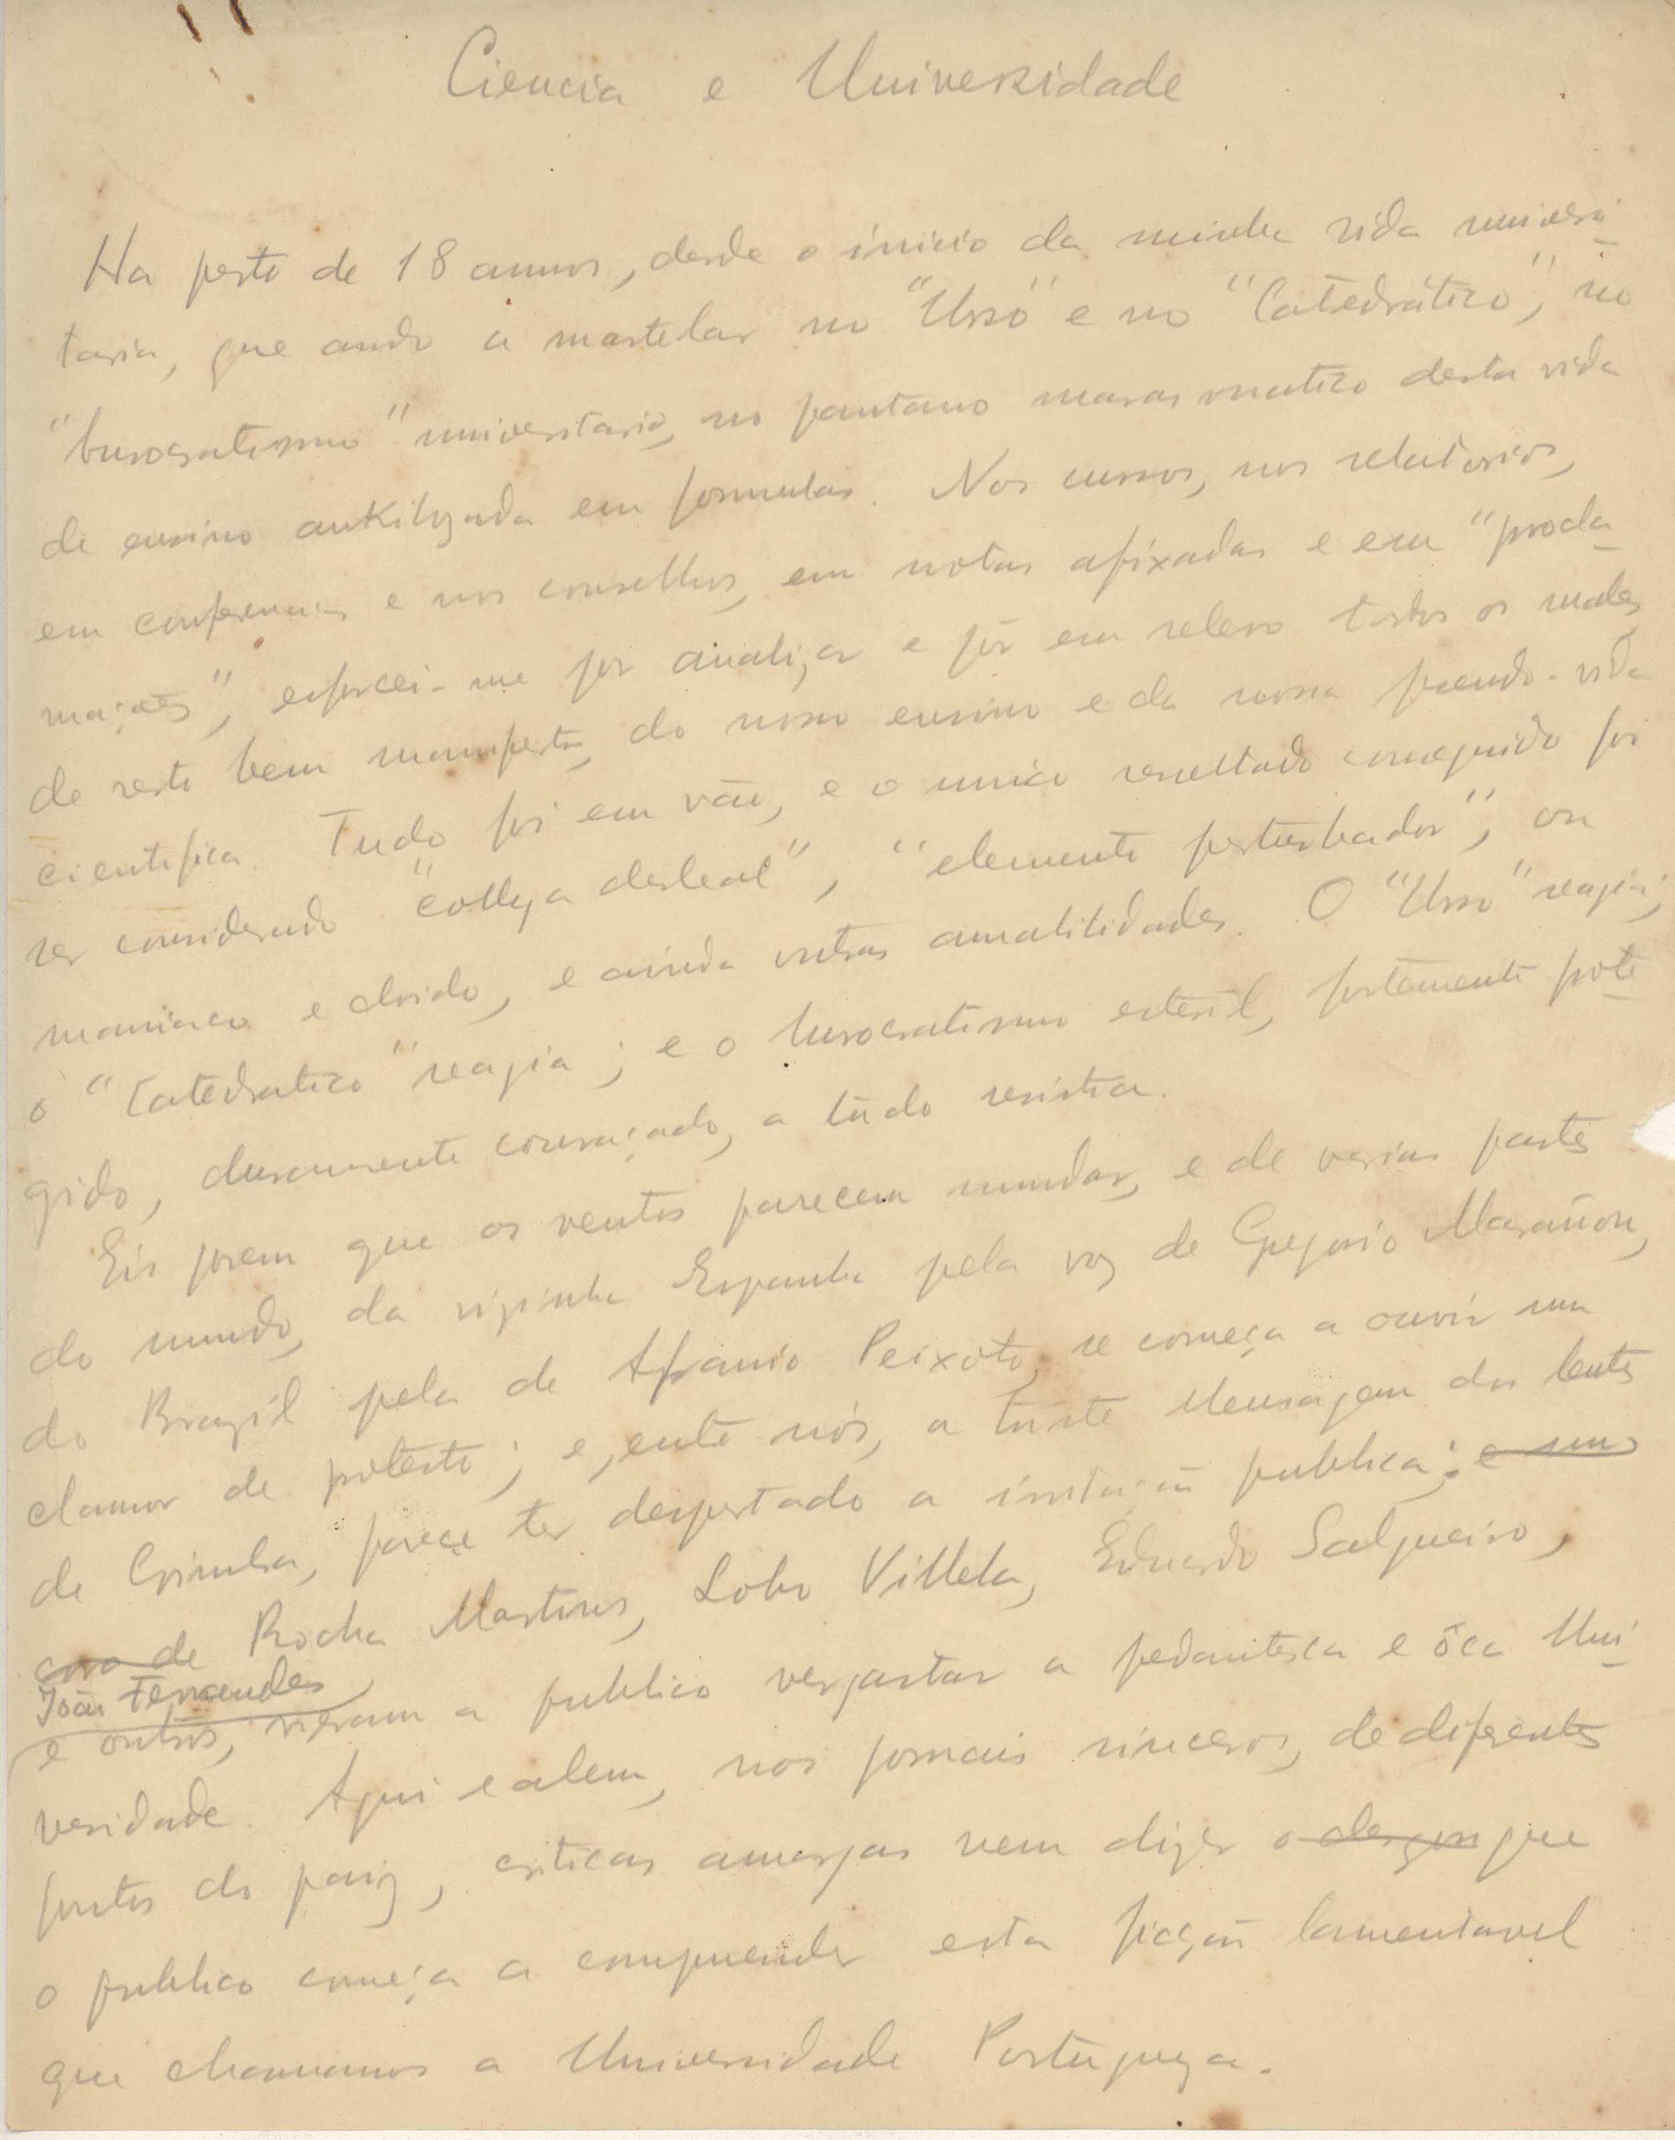 Ciencia e Universidade
Ha perto de 18 annos, desde o inicio da minha vida universi-
taria, que ando a martelar no "Urso" e no "Catedrático", no
"burocratismo" universitario, no pantano marasmatico desta vida
de ensino ankilozada em formulas. Nos cursos, nos relatorios,
em conferencias e nos conselhos, em notas afixadas e em "procla-
mações", esforcei-me por analizar e pôr em relevo todos os males,
de resto bem manifestos, do nosso ensino e da nossa pseudo-vida
cientifica. Tudo foi em vão, e o unico resultado conseguido foi
ser considerado "collega desleal", "elemento perturbador", ou
maniaco e doido, e ainda outras amabilidades. O "Urso" reagia;
o "Catedratico" reagia; e o burocratismo esteril, fortemente prote-
gido, duramente couraçado, a tudo resistia.
Eis porem que os ventos parecem mudar, e de varias partes
do mundo, da vizinha Espanha pela voz de Gregorio Marañon,
do Brazil pela de Afranio Peixoto, se começa a ouvir um
clamor de protesto; e, entre nós, a triste Mensagem dos lentes
de Coimbra, parece ter despertado a irritação publica; e um
coro de Rocha Martins, Lobo Villela, Eduardo Salgueiro,
João Fernandes
e outros, vieram a publico vergastar a pedantesca e ôca Uni-
versidade. Aqui e alem, nos jornais sinceros, de diferentes
pontos do paiz, criticas amargas vem dizer o que
o publico começa a comprender esta ficção lamentavel
que chamamos a Universidade Portugueza.